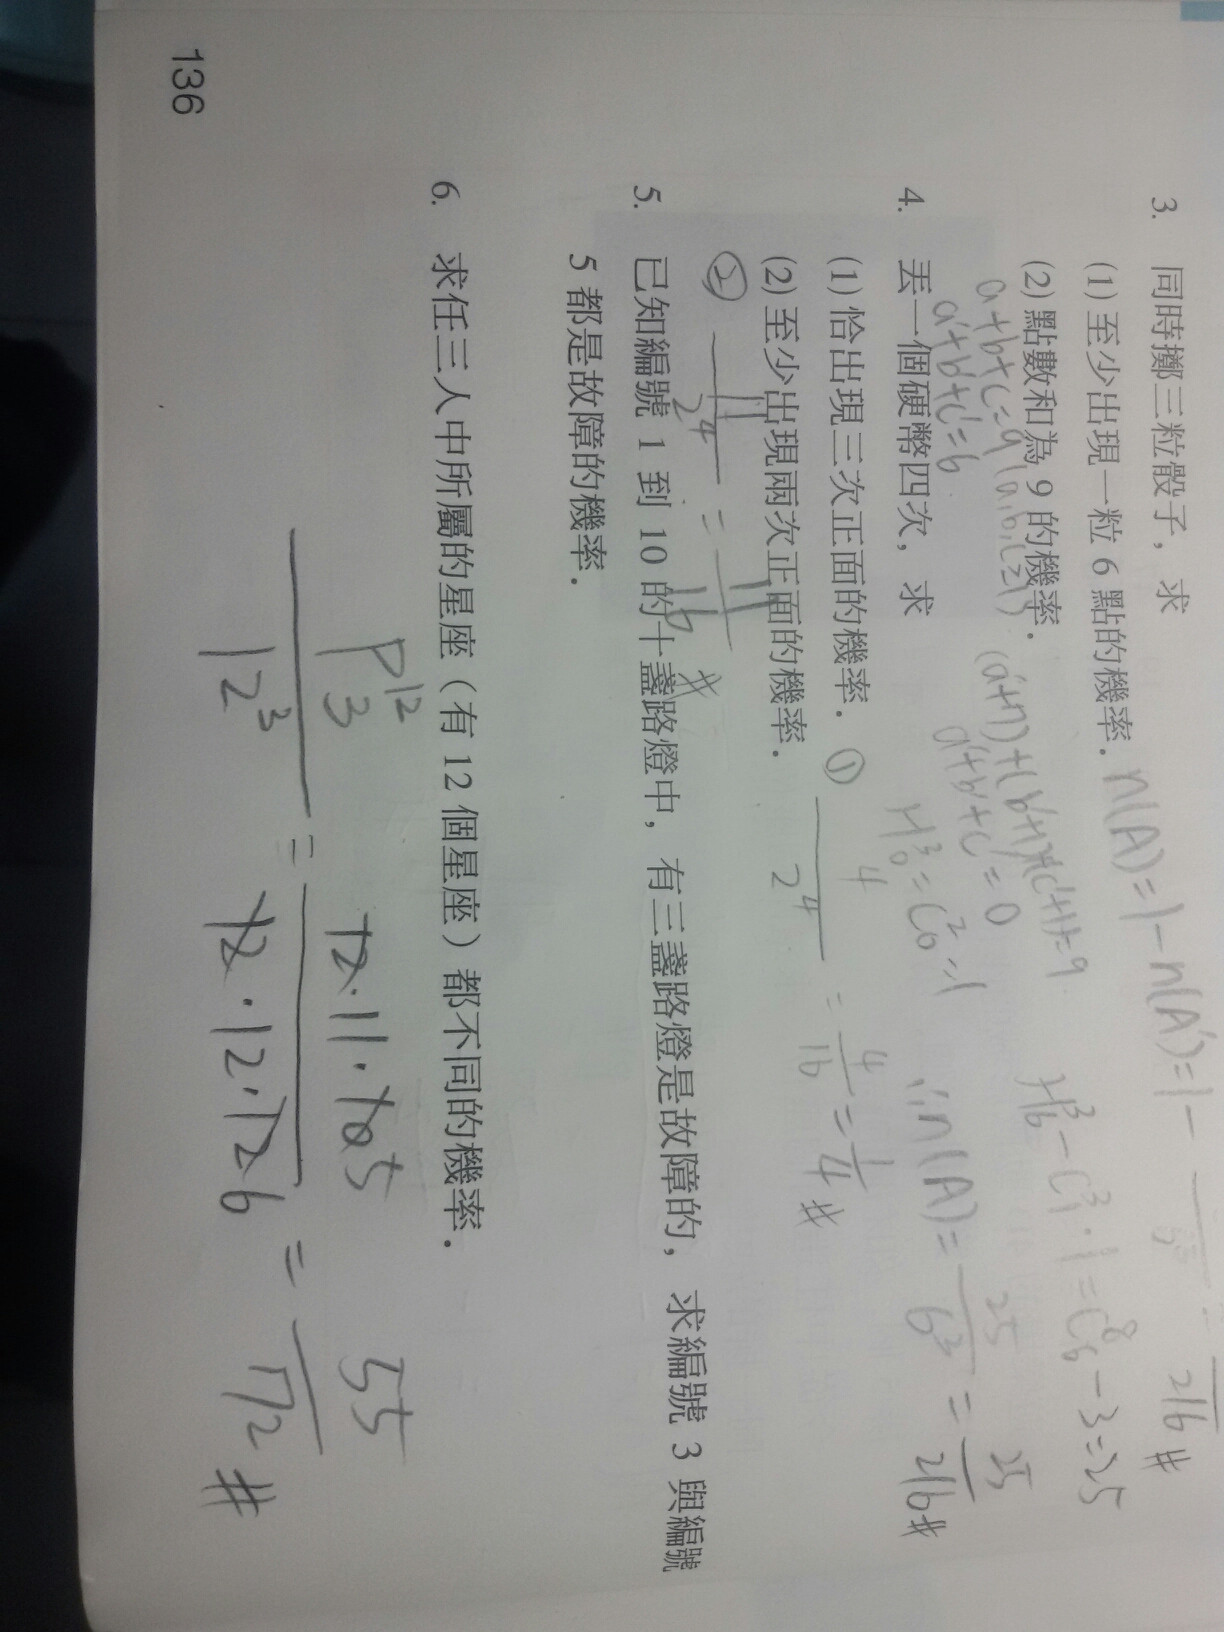 3. 同時擲三粒骰子，求
(1) 至少出現一粒 6 點的機率． n(A)=1-n(A')=1-
216 #
(2) 點數和為 9 的機率．
a+b+c=9 (a,b,c≥1)
(a'+1)+(b'+1)+(c'+1)=9
H³₆-C³₁·1=C⁸₆-3=25
a'+b'+c'=6
a'+b'+c'=0
H³₀=C²₀=1
∴n(A)=25/6³=25/216 #
4. 丟一個硬幣四次，求
(1) 恰出現三次正面的機率． ① 4/2⁴=4/16=1/4 #
(2) 至少出現兩次正面的機率．
② 11/2⁴=11/16 #
5. 已知編號 1 到 10 的十盞路燈中，有三盞路燈是故障的，求編號 3 與編號
5 都是故障的機率．
6. 求任三人中所屬的星座（有 12 個星座）都不同的機率．
P¹²₃/12³=12·11·10 5/12·12·12 6=55/72 #
136